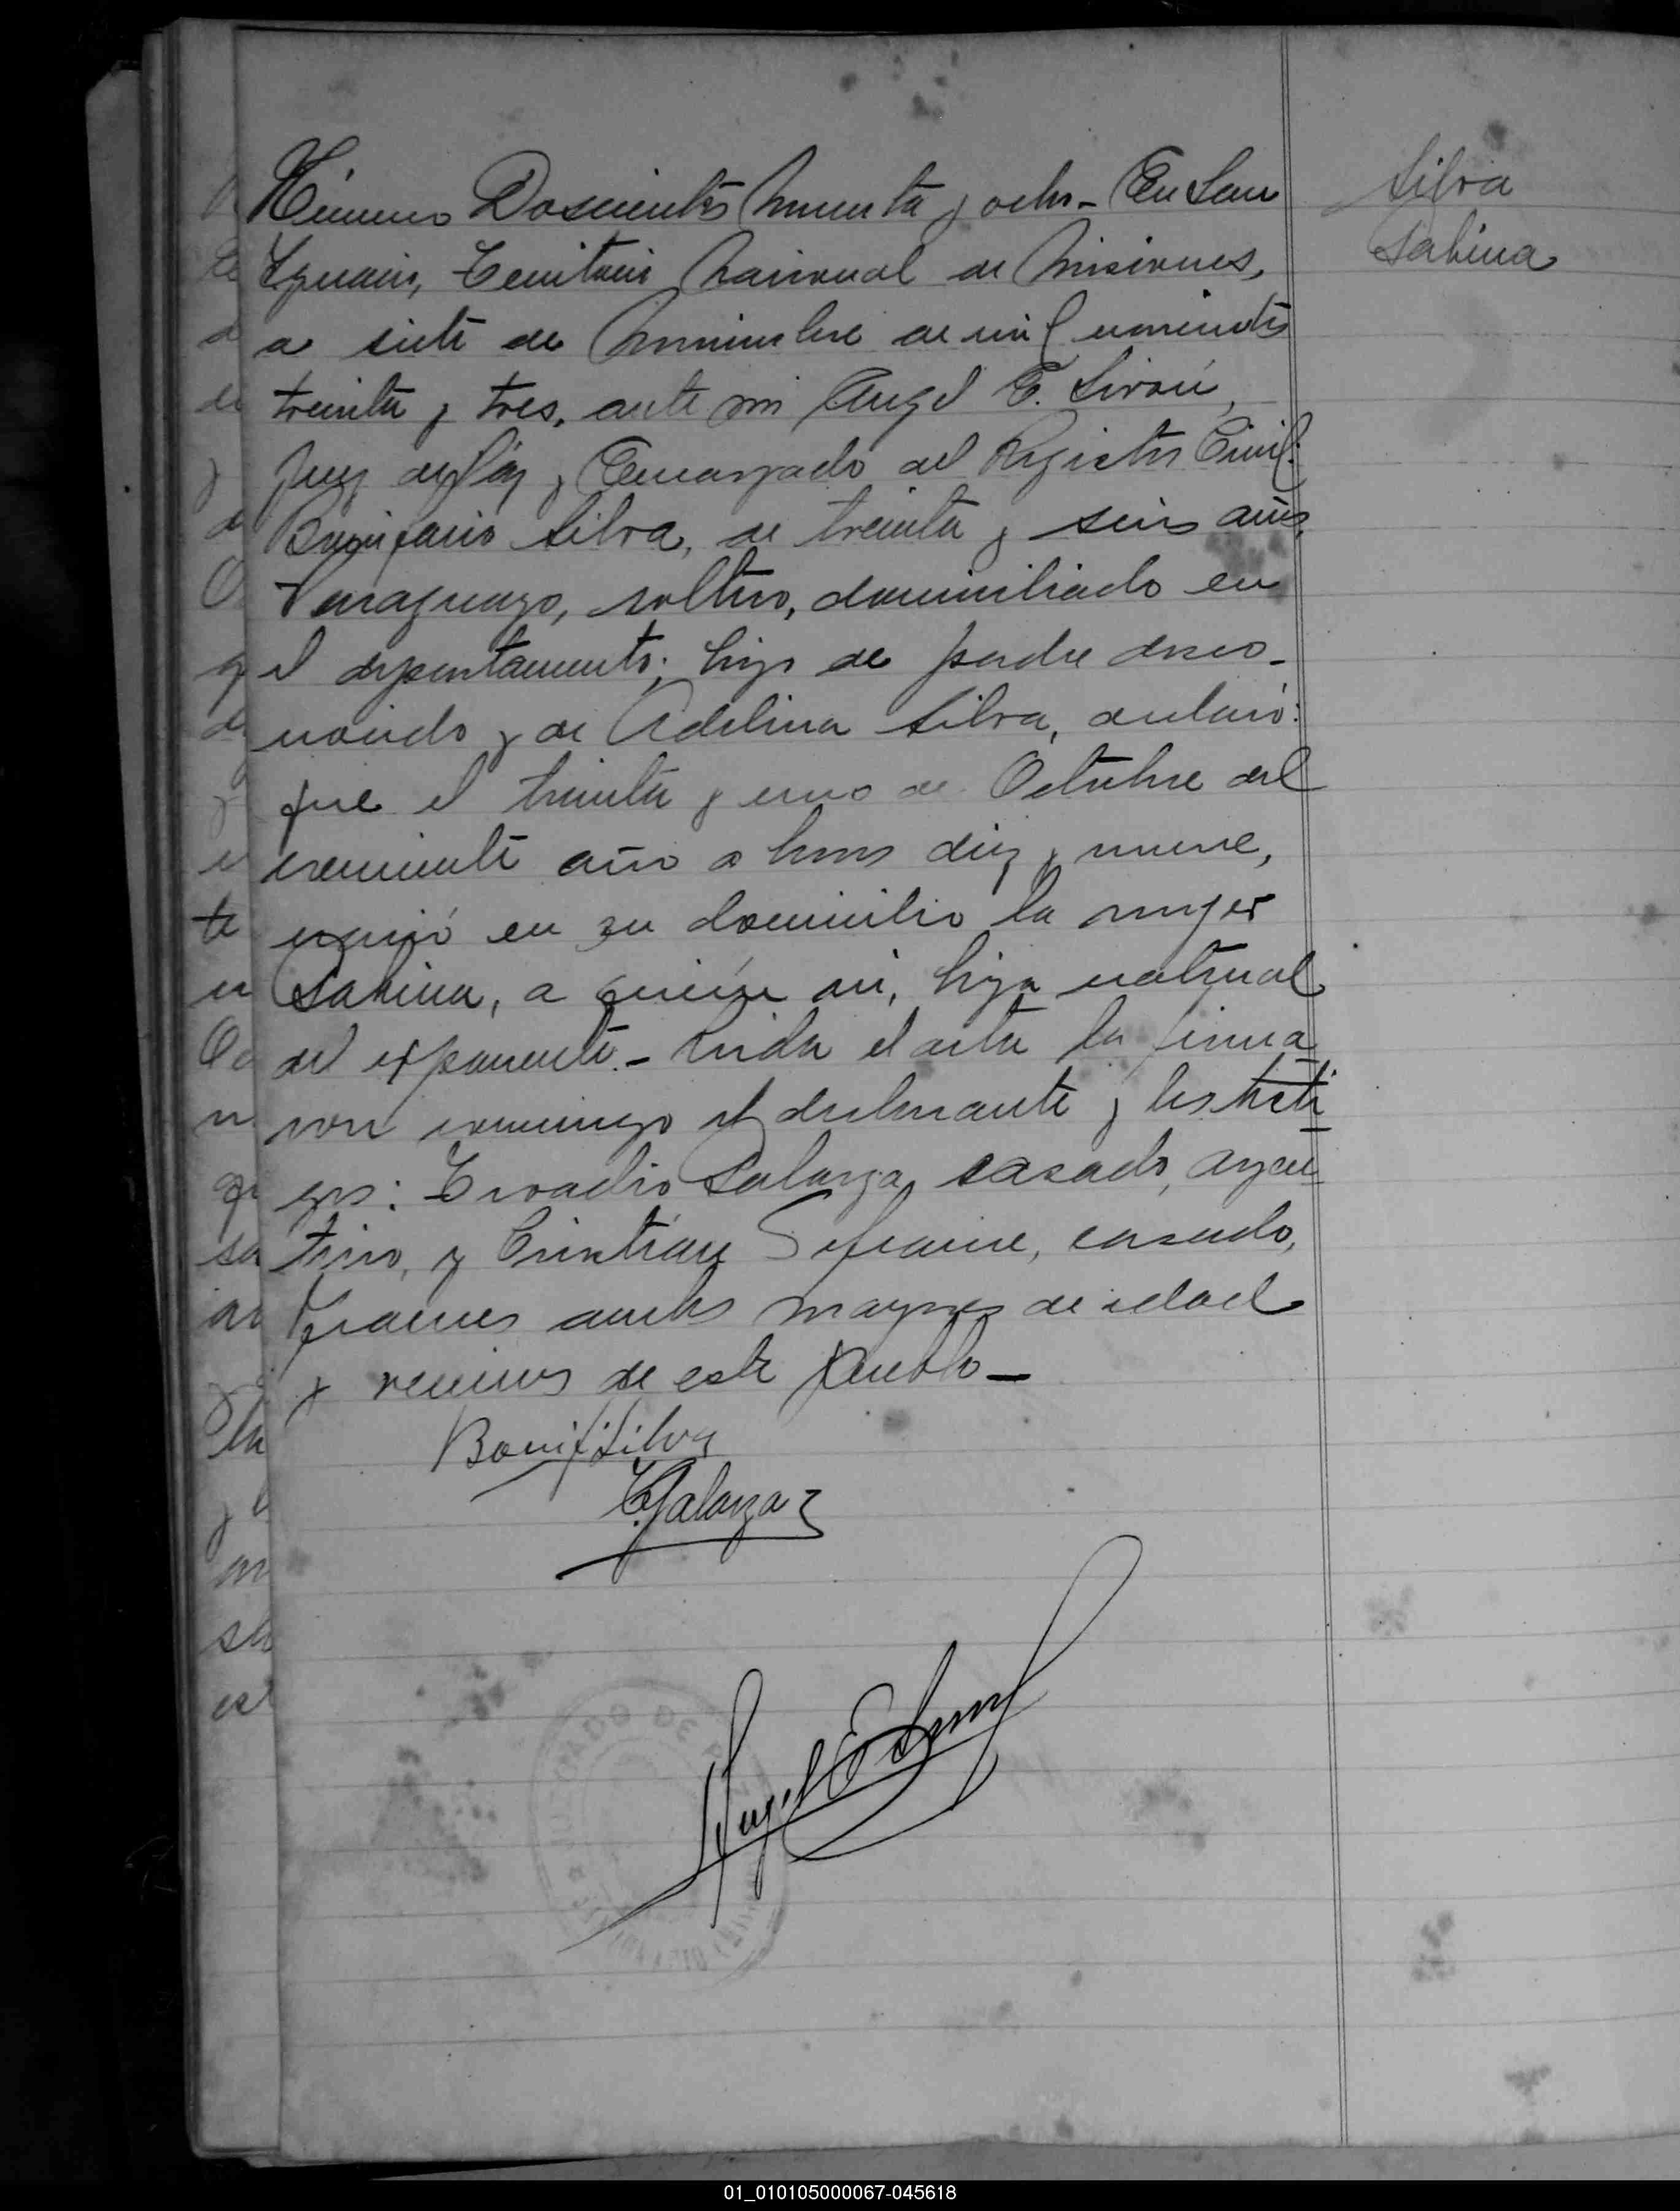 Número Doscientos Noventa y ocho - En San
Ignacio, Territorio Nacional de Misiones,
a siete de Noviembre de mil novecientos
treinta y tres, ante mi Angel E.
Juez de Paz y Encargado del Registro Civil:
Bonifacio Silva, de treinta y seis años,
Paraguayo, soltero, domiciliado en
el departamento; hijo de padre desco-
nocido y de Adelina Silva, declaró:
que el treinta y uno de Octubre del
corriente año a horas diez y nueve,
nació en su domicilio la mujer
Sabina, a quién vi, hija natural
del exponente. - Leida el acta la firma
ron conmigo el declarante y los testi
gos: Evadio Galarza, casado, argen
tino, y Cristián casado,
frances ambos mayores de edad
y vecinos de este Pueblo -
Silva
Sabina
Bonif. Silva
E. Galarza
Angel E.
JUZGADO DE
01_010105000067-045618